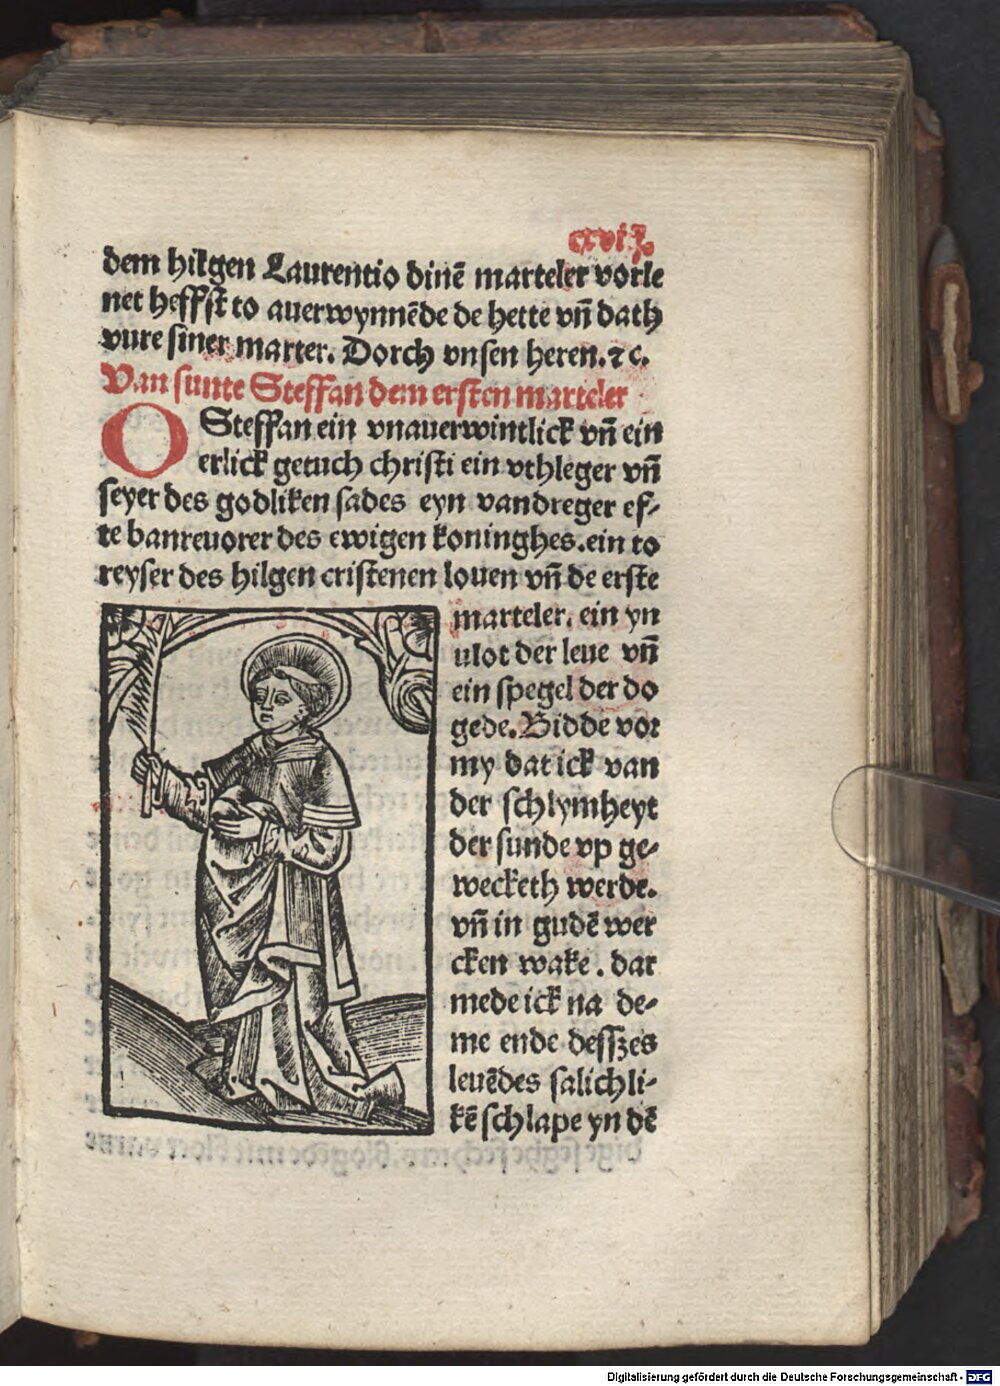 cxvij.
dem hilgen Laurentio dinē marteler vorle
net heffst to auerwynnēde de hette vn̄ dath
vure siner marter. Dorch vnsen heren. ⁊c.
Van sunte Steffan dem ersten marteler
O Steffan ein vnauerwintlick vn̄ ein
erlick getuch christi ein vthleger vn̄
seyer des godliken sades eyn vandreger ef-
te banreuorer des ewigen koninghes. ein to
reyser des hilgen cristenen louen vn̄ de erste
marteler. ein yn
ulot der leue vn̄
ein spegel der do
gede. Bidde vor
my dat ick van
der schlymheyt
der sunde vp ge-
wecketh werde.
vn̄ in gudē wer
cken wake. dar
mede ick na de-
me ende desszes
leuēdes salichli-
kē schlape yn dē
Digitalisierung gefördert durch die Deutsche Forschungsgemeinschaft - DFG